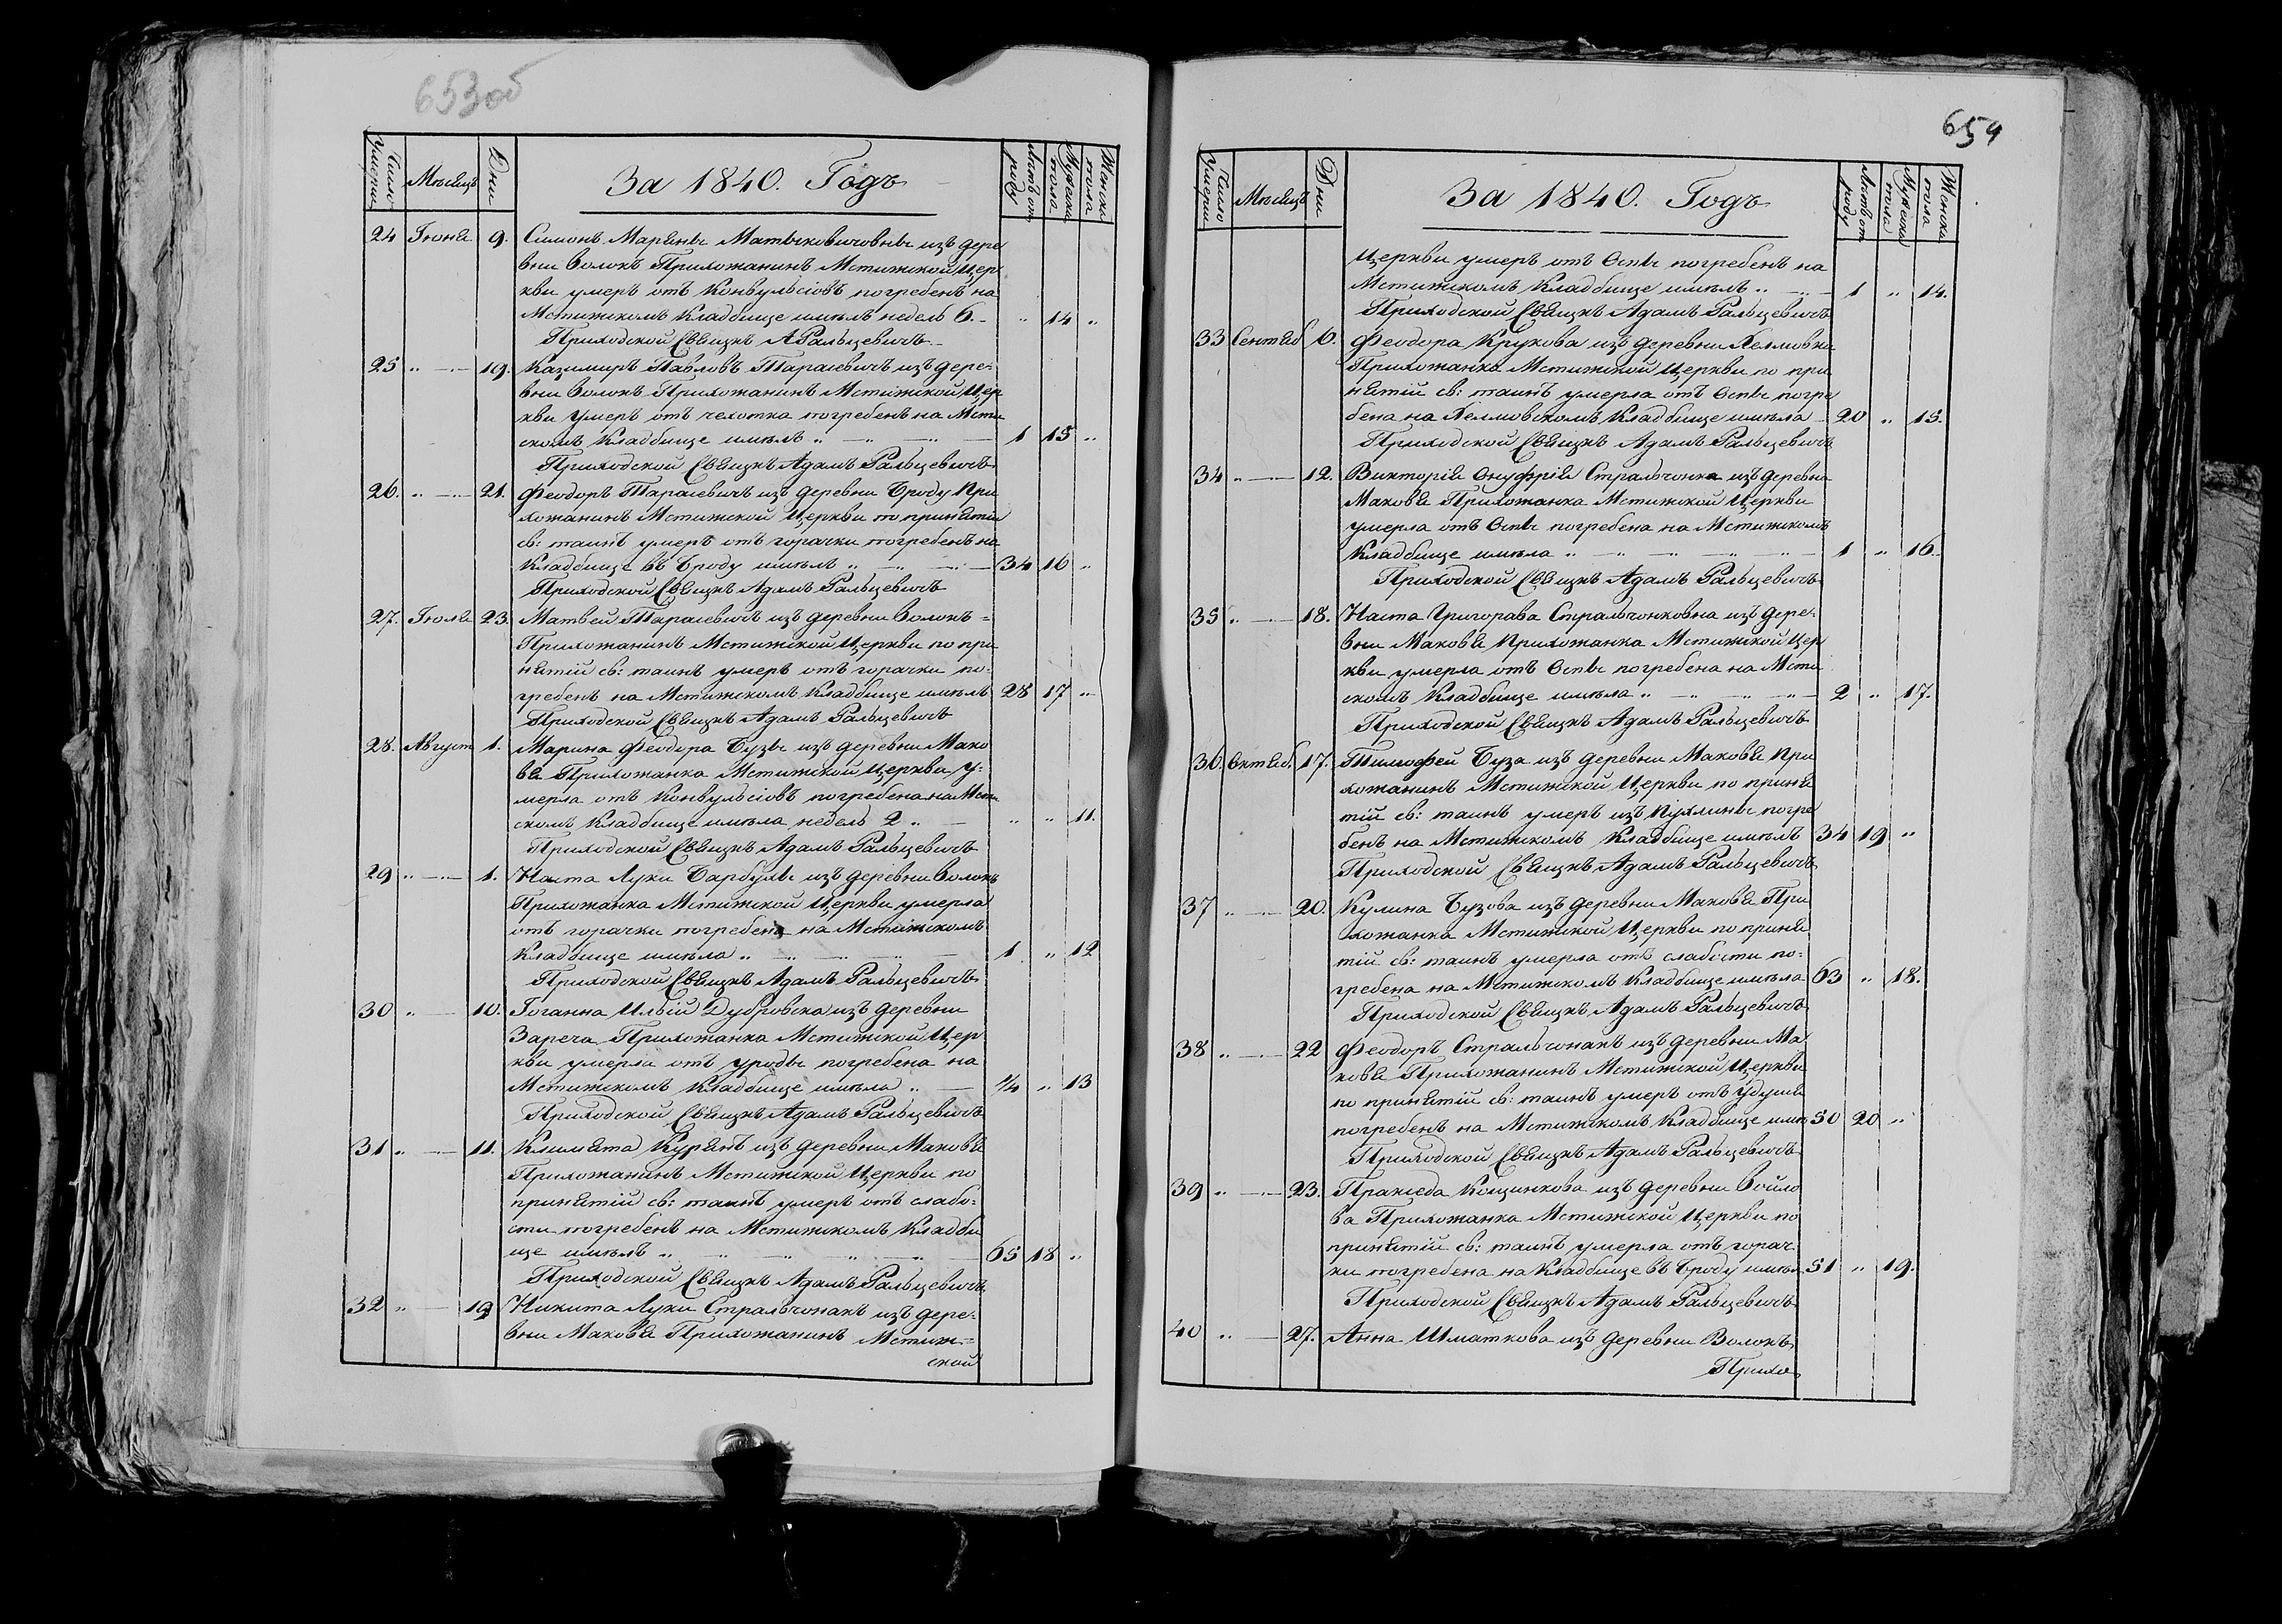 653 об
Число Умерш. Мѣсяцъ Дни За 1840. Годъ лѣтъ от роду Мужеска пола Женска пола
24 Іюня 9. Симонъ Маряны Матыковичовны изъ дере
вни Волокъ Прихожанинъ Мстижской Цер
кви умеръ отъ Конвульсіовъ погребенъ на
Мстижскомъ Кладбище имѣлъ недель 6. „ 14 „
Приходской Свящнъ А Ральцевичъ
25 „ — 19. Казимиръ Павловъ Тарасевичъ изъ дере-
вни Волокъ Прихожанинъ Мстижской Цер
кви умеръ отъ чехотка погребенъ на Мсти
скомъ Кладбище имѣлъ „ — 1 15 „
Приходской Свящнъ Адамъ Ральцевичъ
26. „ — 21. Феодоръ Тарасевичъ изъ деревни Броду При
хожанинъ Мстижской Церкви по принятіи
св: таинъ умеръ отъ горачки погребенъ на
Кладбище въ Броду имѣлъ „ — 34 16 „
Приходской Свящнъ Адамъ Ральцевичъ
27. Іюля 23. Матвей Тарасевичъ изъ деревни Волокъ =
Прихожанинъ Мстижской Церкви по при
нятій св: таинъ умеръ отъ горачки по-
гребенъ на Мстижскомъ Кладбище имѣлъ 28 17 „
Приходской Свящнъ Адамъ Ральцевичъ
28. Август 1. Марина Феодора Бузы изъ деревни Мако
вя Прихожанка Мстижской Церкви у-
мерла отъ Конвульсіовъ погребена на Мсти
скомъ Кладбище имѣла недель 2 „ — „ „ 11.
Приходской Свящнъ Адамъ Ральцевичъ
29 „ — 1. Наста Луки Барбулы изъ деревни Волокъ
Прихожанка Мстижской Церкви умерла
отъ горачки погребена на Мстижскомъ
Кладбище имѣла „ — 1 „ 12
Приходской Свящнъ Адамъ Ральцевичъ
30 „ — 10. Іоганна Ильіи Дубровска изъ деревни
Зареча Прихожанка Мстижской Цер
кви умерла отъ уроды погребена на
Мстижскомъ Кладбище имѣла „ — 1/4 „ 13
Приходской Свящнъ Адамъ Ральцевичъ
31 „ — 11. Климята Курянъ изъ деревни Маковя
Прихожанинъ Мстижской Церкви по
принятій св: таинъ умеръ отъ слабо-
сти погребенъ на Мстижскомъ Кладби
ще имѣлъ „ — 65 18 „
Приходской Свящнъ Адамъ Ральцевичъ
32 „ — 19 Никита Луки Стральчонакъ изъ дере-
вни Маковя Прихожанинъ Мстиж-
ской
654
Число Умерш. Мѣсяцъ Дни За 1840. Годъ лѣтъ от роду Мужеска пола Женска пола
Церкви умеръ отъ Оспы погребенъ на
Мстижскомъ Кладбище имѣлъ „ — 1 „ 14.
Приходской Свящнъ Адамъ Ральцевичъ
33 Сентяб 6. Феодора Крукова изъ деревни Хелмовка
Прихожанка Мстижской Церкви по при
нятій св: таинъ умерла отъ Оспы погре
бена на Хелмовскомъ Кладбище имѣла — 20 „ 15.
Приходской Свящнъ Адамъ Ральцевичъ
34 „ — 12. Викторія Онуфрія Стральчонка изъ деревна
Маковя Прихожанка Мстижской Церкви
умерла отъ Оспы погребена на Мстижскомъ
Кладбище имѣла „ — 1 „ 16.
Приходской Свящнъ Адамъ Ральцевичъ
35 „ — 18. Наста Григорава Стральчонковна изъ дере-
вни Маковя Прихожанка Мстижской Цер
кви умерла отъ Оспы погребена на Мсти
скомъ Кладбище имѣла „ — 2 „ 17.
Приходской Свящнъ Адамъ Ральцевичъ
36. Октяб. 17. Тимофей Буза изъ деревни Маковя При
хожанинъ Мстижской Церкви по приня
тій св: таинъ умеръ изъ Пухлины погре
бенъ на Мстижскомъ Кладбище имѣлъ 34 19 „
Приходской Свящнъ Адамъ Ральцевичъ
37 „ — 20. Кулина Бузова изъ деревни Маковя При
хожанка Мстижской Церкви по приня
тій св: таинъ умерла отъ слабости по-
гребена на Мстижскомъ Кладбище имѣла 63 „ 18.
Приходской Свящнъ Адамъ Ральцевичъ
38 „ — 22 Феодоръ Стральчонакъ изъ деревни Ма
ковя Прихожанинъ Мстижской Церкви
по принятій св: таинъ умеръ отъ Удушя
погребенъ на Мстижскомъ Кладбище имѣ 50 20 „
Приходской Свящнъ Адамъ Ральцевичъ
39 „ — 23. Праксѣда Кощинкова изъ деревни Войло
ва Прихожанка Мстижской Церкви по
принятій св: таинъ умерла отъ горач
ки погребена на Кладбище въ Броду имѣл 51 „ 19.
Приходской Свящнъ Адамъ Ральцевичъ
40 „ — 27. Анна Шматкова изъ деревни Волокъ
Прихо